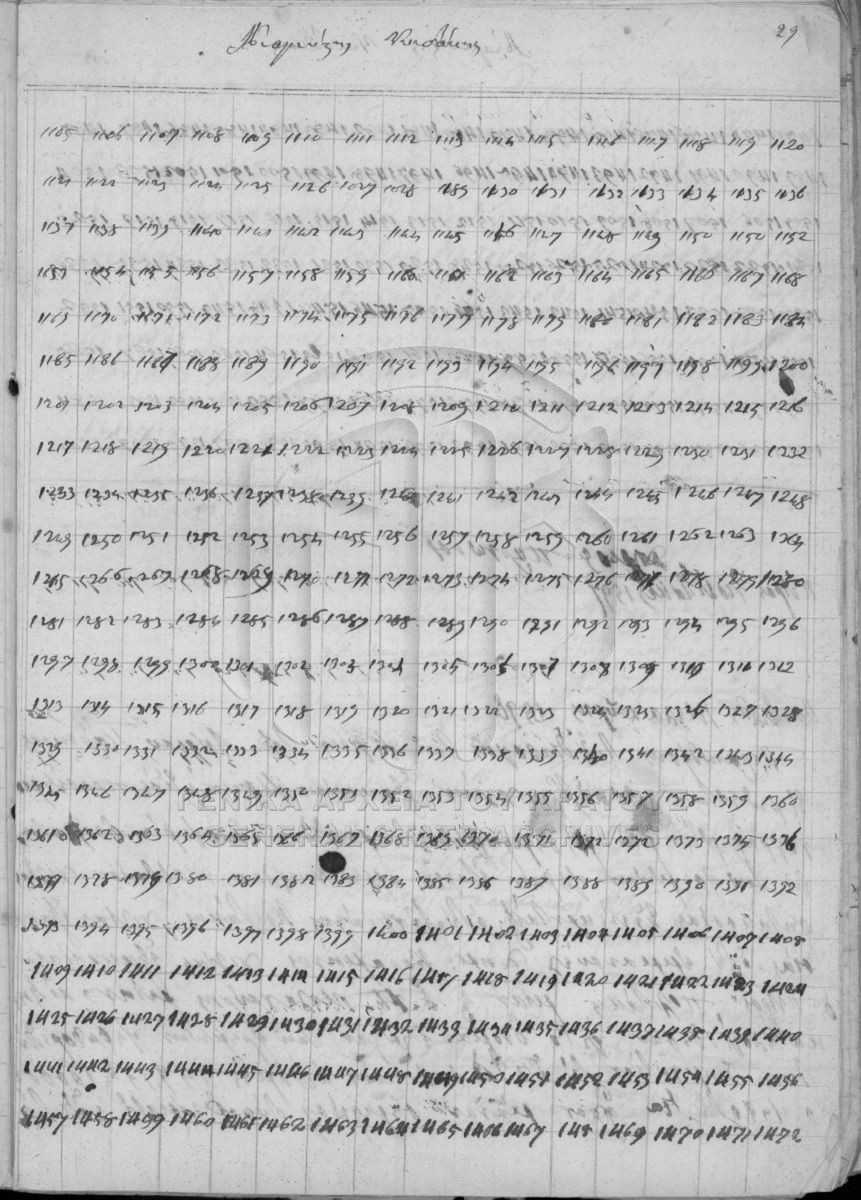 29
1105 1106 1107 1108 1109 1110 1111 1112 1113 1114 1115 1116 1117 1118 1119 1120
1121 1122 1123 1124 1125 1126 1027 1028 1089 1130 1131 1132 1133 1134 1135 1136
1137 1138 1139 1140 1141 1142 1143 1144 1145 1146 1147 1148 1149 1150 1150 1152
1153 1154 1155 1156 1157 1158 1159 1160 1161 1162 1163 1164 1165 1166 1167 1168
1169 1170 1171 1172 1173 1174 1175 1176 1177 1178 1179 1180 1181 1182 1183 1184
1185 1186 1187 1188 1189 1190 1191 1192 1193 1194 1195 1196 1197 1198 1199 1200
1201 1202 1203 1204 1205 1206 1207 1208 1209 1210 1211 1212 1213 1214 1215 1216
1217 1218 1219 1220 1221 1222 1223 1224 1225 1226 1227 1228 1229 1230 1231 1232
1233 1234 1235 1236 1237 1238 1239 1240 1241 1242 1243 1244 1245 1246 1247 1248
1249 1250 1251 1252 1253 1254 1255 1256 1257 1258 1259 1260 1261 1262 1263 1264
1265 1266 1267 1268 1269 1270 1271 1272 1273 1274 1275 1276 1277 1278 1279 1280
1281 1282 1283 1284 1285 1286 1287 1288 1289 1290 1291 1292 1293 1294 1295 1296
1297 1298 1299 1300 1301 1302 1303 1304 1305 1306 1307 1308 1309 1310 1311 1312
1313 1314 1315 1316 1317 1318 1319 1320 1321 1322 1323 1324 1325 1326 1327 1328
1329 1330 1331 1332 1333 1334 1335 1336 1337 1338 1339 1340 1341 1342 1343 1344
1345 1346 1347 1348 1349 1350 1351 1352 1353 1354 1355 1356 1357 1358 1359 1360
1362 1363 1364 1365 1366 1367 1368 1369 1370 1371 1372 1372 1373 1375 1376
1377 1378 1379 1380 1381 1382 1383 1384 1385 1386 1387 1388 1389 1390 1391 1392
1393 1394 1395 1396 1397 1398 1399 1400 1401 1402 1403 1404 1405 1406 1407 1408
1409 1410 1411 1412 1413 1414 1415 1416 1417 1418 1419 1420 1421 1422 1423 1424
1425 1426 1427 1428 1429 1430 1431 1432 1433 1434 1435 1436 1437 1438 1439 1440
1441 1442 1443 1444 1445 1446 1447 1448 1449 1450 1451 1452 1453 1454 1455 1456
1457 1458 1459 1460 1461 1462 1463 1464 1465 1466 1467 1468 1469 1470 1471 1472